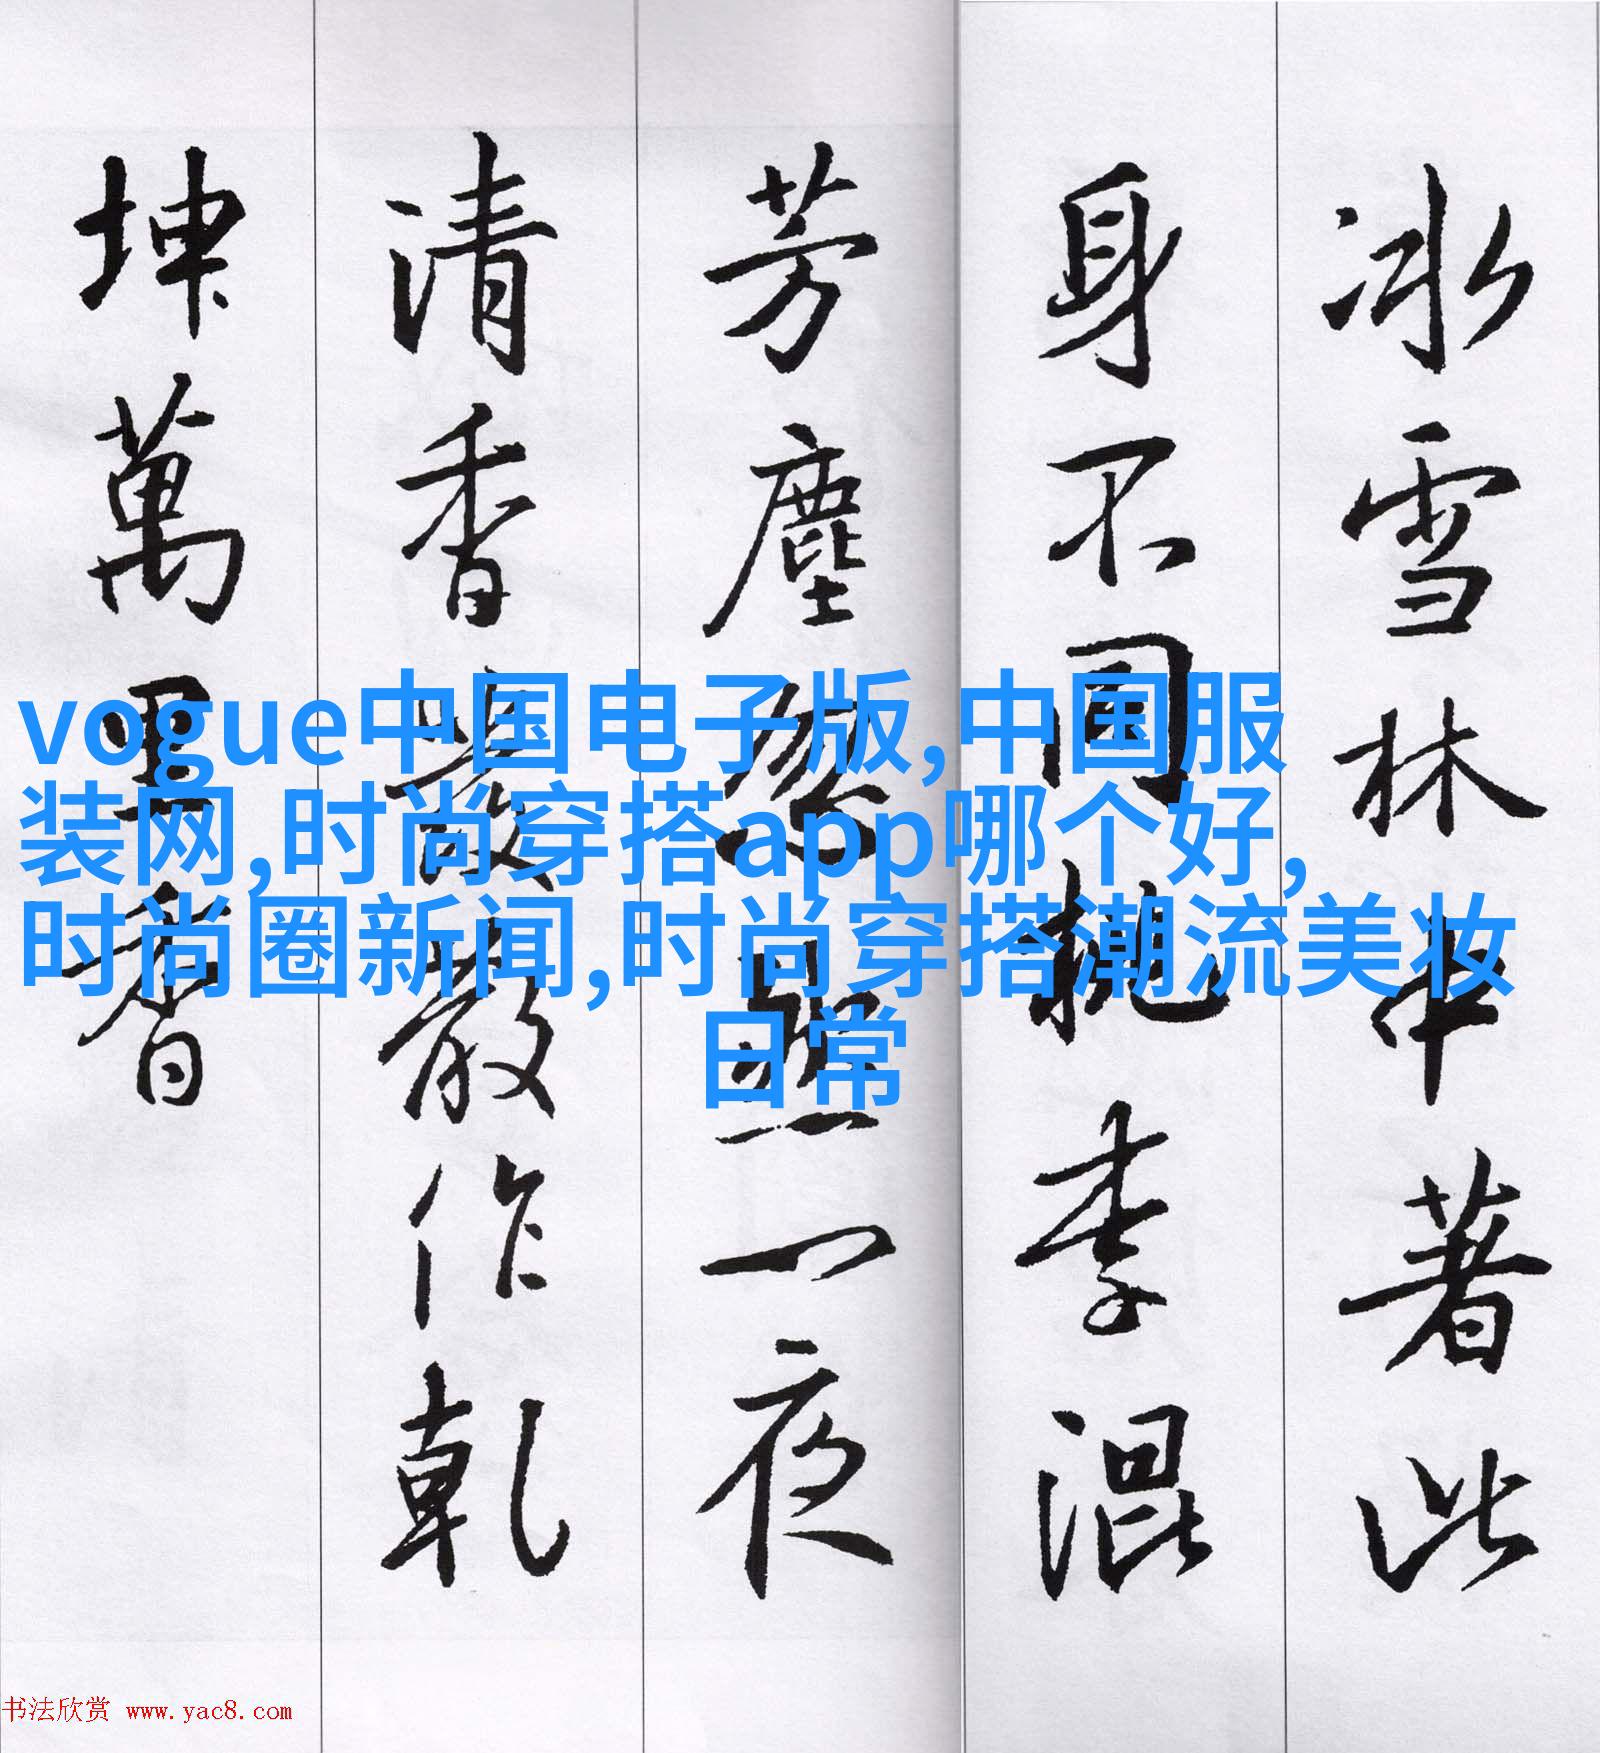 冰雪林中著此
身不同桃李混
芳塵忽然一夜
清香發散作乾
坤萬里春
vogue中国电子版,中国服
装网,时尚穿搭app哪个好,
时尚圈新闻,时尚穿搭潮流美妆
日常
书法欣赏 www.yac8.com